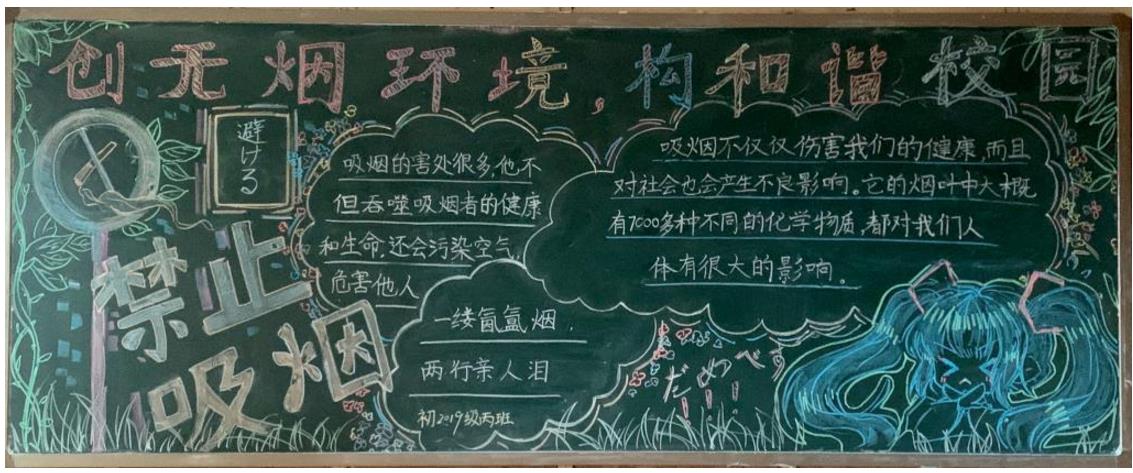 创无烟环境,构和谐校园
避ける
禁止
吸烟
吸烟的害处很多,他不
但吞噬吸烟者的健康
和生命,还会污染空气,
危害他人
一缕氤氲烟,
两行亲人泪
初2019级丙班
吸烟不仅仅伤害我们的健康,而且
对社会也会产生不良影响。它的烟叶中大概
有7000多种不同的化学物质,都对我们人
体有很大的影响。
だめ